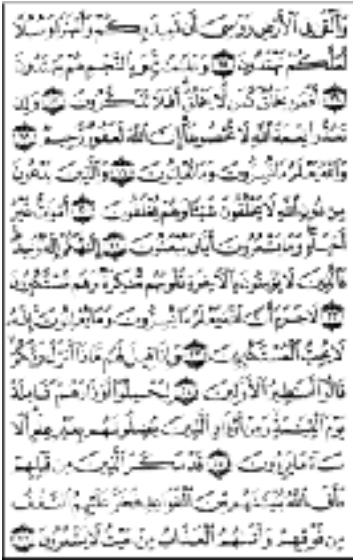 وَأَلْقَىٰ فِي ٱلْأَرْضِ رَوَٰسِيَ أَن تَمِيدَ بِكُمْ وَأَنْهَٰرًا وَسُبُلًا
لَّعَلَّكُمْ تَهْتَدُونَ ۝١٥ وَعَلَٰمَٰتٍ وَبِٱلنَّجْمِ هُمْ يَهْتَدُونَ
۝١٦ أَفَمَن يَخْلُقُ كَمَن لَّا يَخْلُقُ أَفَلَا تَذَكَّرُونَ ۝١٧ وَإِن
تَعُدُّوا۟ نِعْمَةَ ٱللَّهِ لَا تُحْصُوهَآ إِنَّ ٱللَّهَ لَغَفُورٌ رَّحِيمٌ ۝١٨
وَٱللَّهُ يَعْلَمُ مَا تُسِرُّونَ وَمَا تُعْلِنُونَ ۝١٩ وَٱلَّذِينَ يَدْعُونَ
مِن دُونِ ٱللَّهِ لَا يَخْلُقُونَ شَيْـًٔا وَهُمْ يُخْلَقُونَ ۝٢٠ أَمْوَٰتٌ غَيْرُ
أَحْيَآءٍ وَمَا يَشْعُرُونَ أَيَّانَ يُبْعَثُونَ ۝٢١ إِلَٰهُكُمْ إِلَٰهٌ وَٰحِدٌ
فَٱلَّذِينَ لَا يُؤْمِنُونَ بِٱلْءَاخِرَةِ قُلُوبُهُم مُّنكِرَةٌ وَهُم مُّسْتَكْبِرُونَ
۝٢٢ لَا جَرَمَ أَنَّ ٱللَّهَ يَعْلَمُ مَا يُسِرُّونَ وَمَا يُعْلِنُونَ إِنَّهُۥ
لَا يُحِبُّ ٱلْمُسْتَكْبِرِينَ ۝٢٣ وَإِذَا قِيلَ لَهُم مَّاذَآ أَنزَلَ رَبُّكُمْ
قَالُوٓا۟ أَسَٰطِيرُ ٱلْأَوَّلِينَ ۝٢٤ لِيَحْمِلُوٓا۟ أَوْزَارَهُمْ كَامِلَةً
يَوْمَ ٱلْقِيَٰمَةِ وَمِنْ أَوْزَارِ ٱلَّذِينَ يُضِلُّونَهُم بِغَيْرِ عِلْمٍ أَلَا
سَآءَ مَا يَزِرُونَ ۝٢٥ قَدْ مَكَرَ ٱلَّذِينَ مِن قَبْلِهِمْ
فَأَتَى ٱللَّهُ بُنْيَٰنَهُم مِّنَ ٱلْقَوَاعِدِ فَخَرَّ عَلَيْهِمُ ٱلسَّقْفُ
مِن فَوْقِهِمْ وَأَتَىٰهُمُ ٱلْعَذَابُ مِنْ حَيْثُ لَا يَشْعُرُونَ ۝٢٦